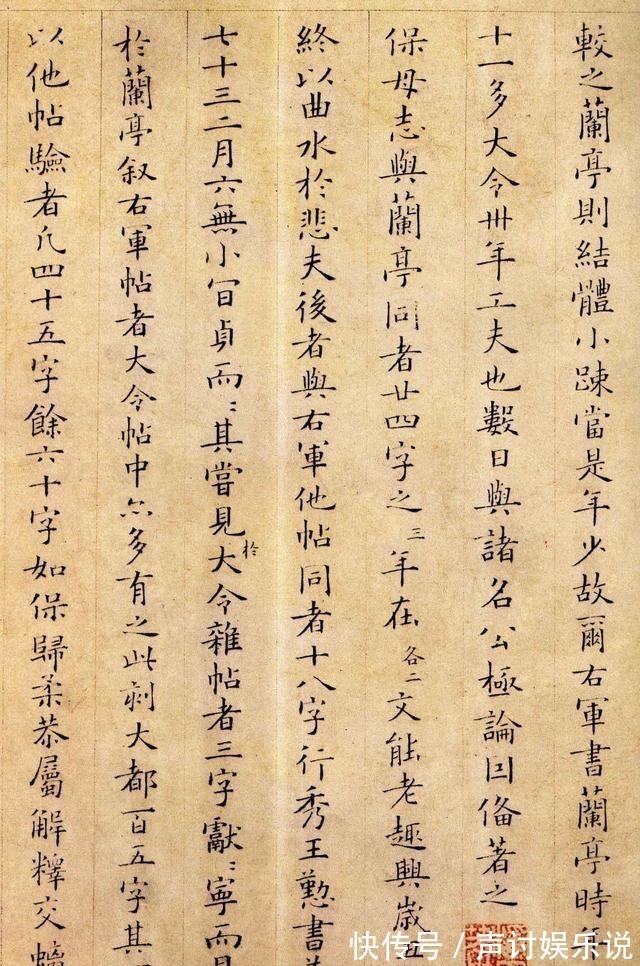 較之蘭亭則結體小踈當是年少故爾右軍書蘭亭時年
十一多大令卅年工夫也數日與諸名公極論因俻著之
保母志與蘭亭同者廿四字之三年在各二文能老趣興歲五
終以曲水於悲夫後者與右軍他帖同者十八字行秀王懃書
七十三二月六無小官貞而〻其嘗見於大令雜帖者三字獻〻寧而見
於蘭亭叙右軍帖者大令帖中亦多有之此刻大都百五字其
以他帖驗者凡四十五字餘六十字如保歸柔恭屬解釋交螭
快传号/声讨娱乐说